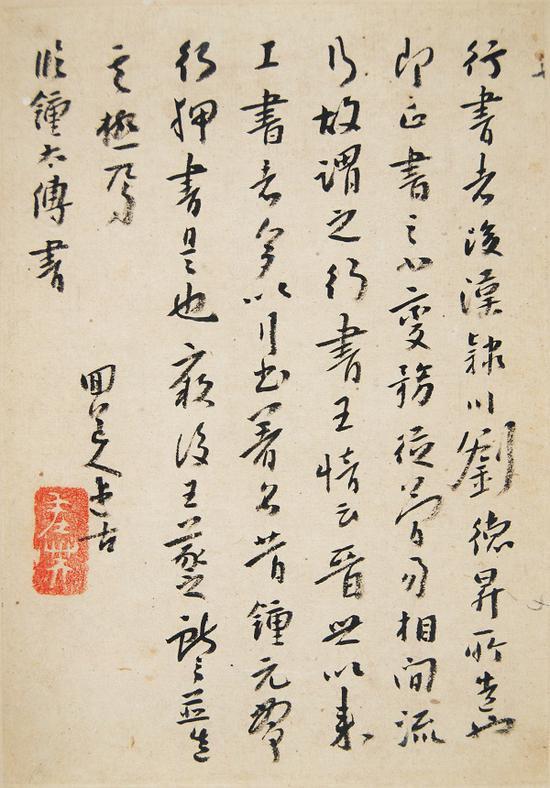 行書者後漢隸川劉德昇所造也
即正書之小變務從簡易相間流
行故謂之行書王愔云晉世以來
工書者多以行書著名昔鍾元常
行押書是也厥後王羲之獻之並造
其極焉
臨鍾太傅書